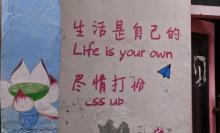 生活是自己的
Life is your own
尽情打扮
ss up